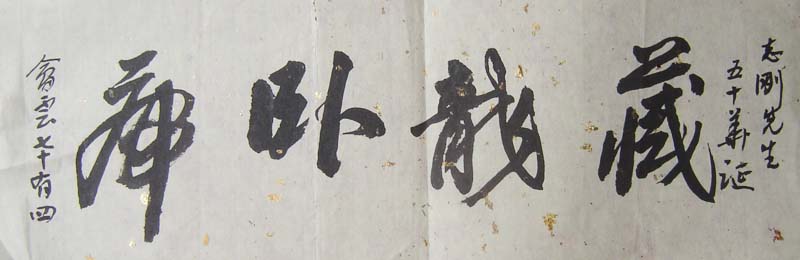 志刚先生
五十华诞
藏龍卧虎
翕雲七十有四